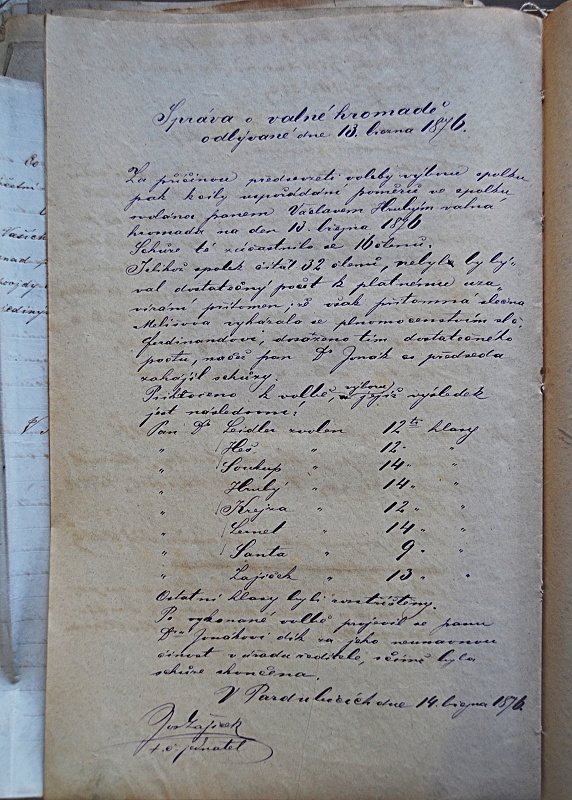 Správa o valné hromadě
odbývané dne 13. března 1876.
Za příčinou předsevzetí volby výboru spolku
pak k cíly uspořádání poměrů ve spolku
svolána panem Václavem Hrubým valná
hromada na den 13. března 1876
Schůze té zúčastnilo se 16 členů.
Jelikož spolek čítal 32 členů, nebyl by bý-
val dostatečný počet k platnému uza-
vírání přítomen; že však přítomna slečna
Melišova vykázala se plnomocenstvím slč.
Ferdinandove, dosaženo tím dostatečného
počtu, načež pan Dr Jonák co předseda
zahájil schůzy.
Přikročeno k volbě výboru, jejíž výsledek
jest následovní:
Pan Dr. Leidler zvolen 12ti hlasy
" Heš " 12 " "
" Soukup " 14 " "
" Hrubý " 14 " "
" Krejza " 12 " "
" Lernet " 14 " "
" Šanta " 9 " "
" Zajíček " 13 " "
Ostatní hlasy byli roztříštěny.
Po vykonané volbě projevil se panu
Dru Jonákovi dík za jeho neunavnou
činost v úřadu ředitele, očímž byla
schůze skončena.
V Pardubicích dne 14. března 1876.
Jos Zajíček
t. č. jednatel